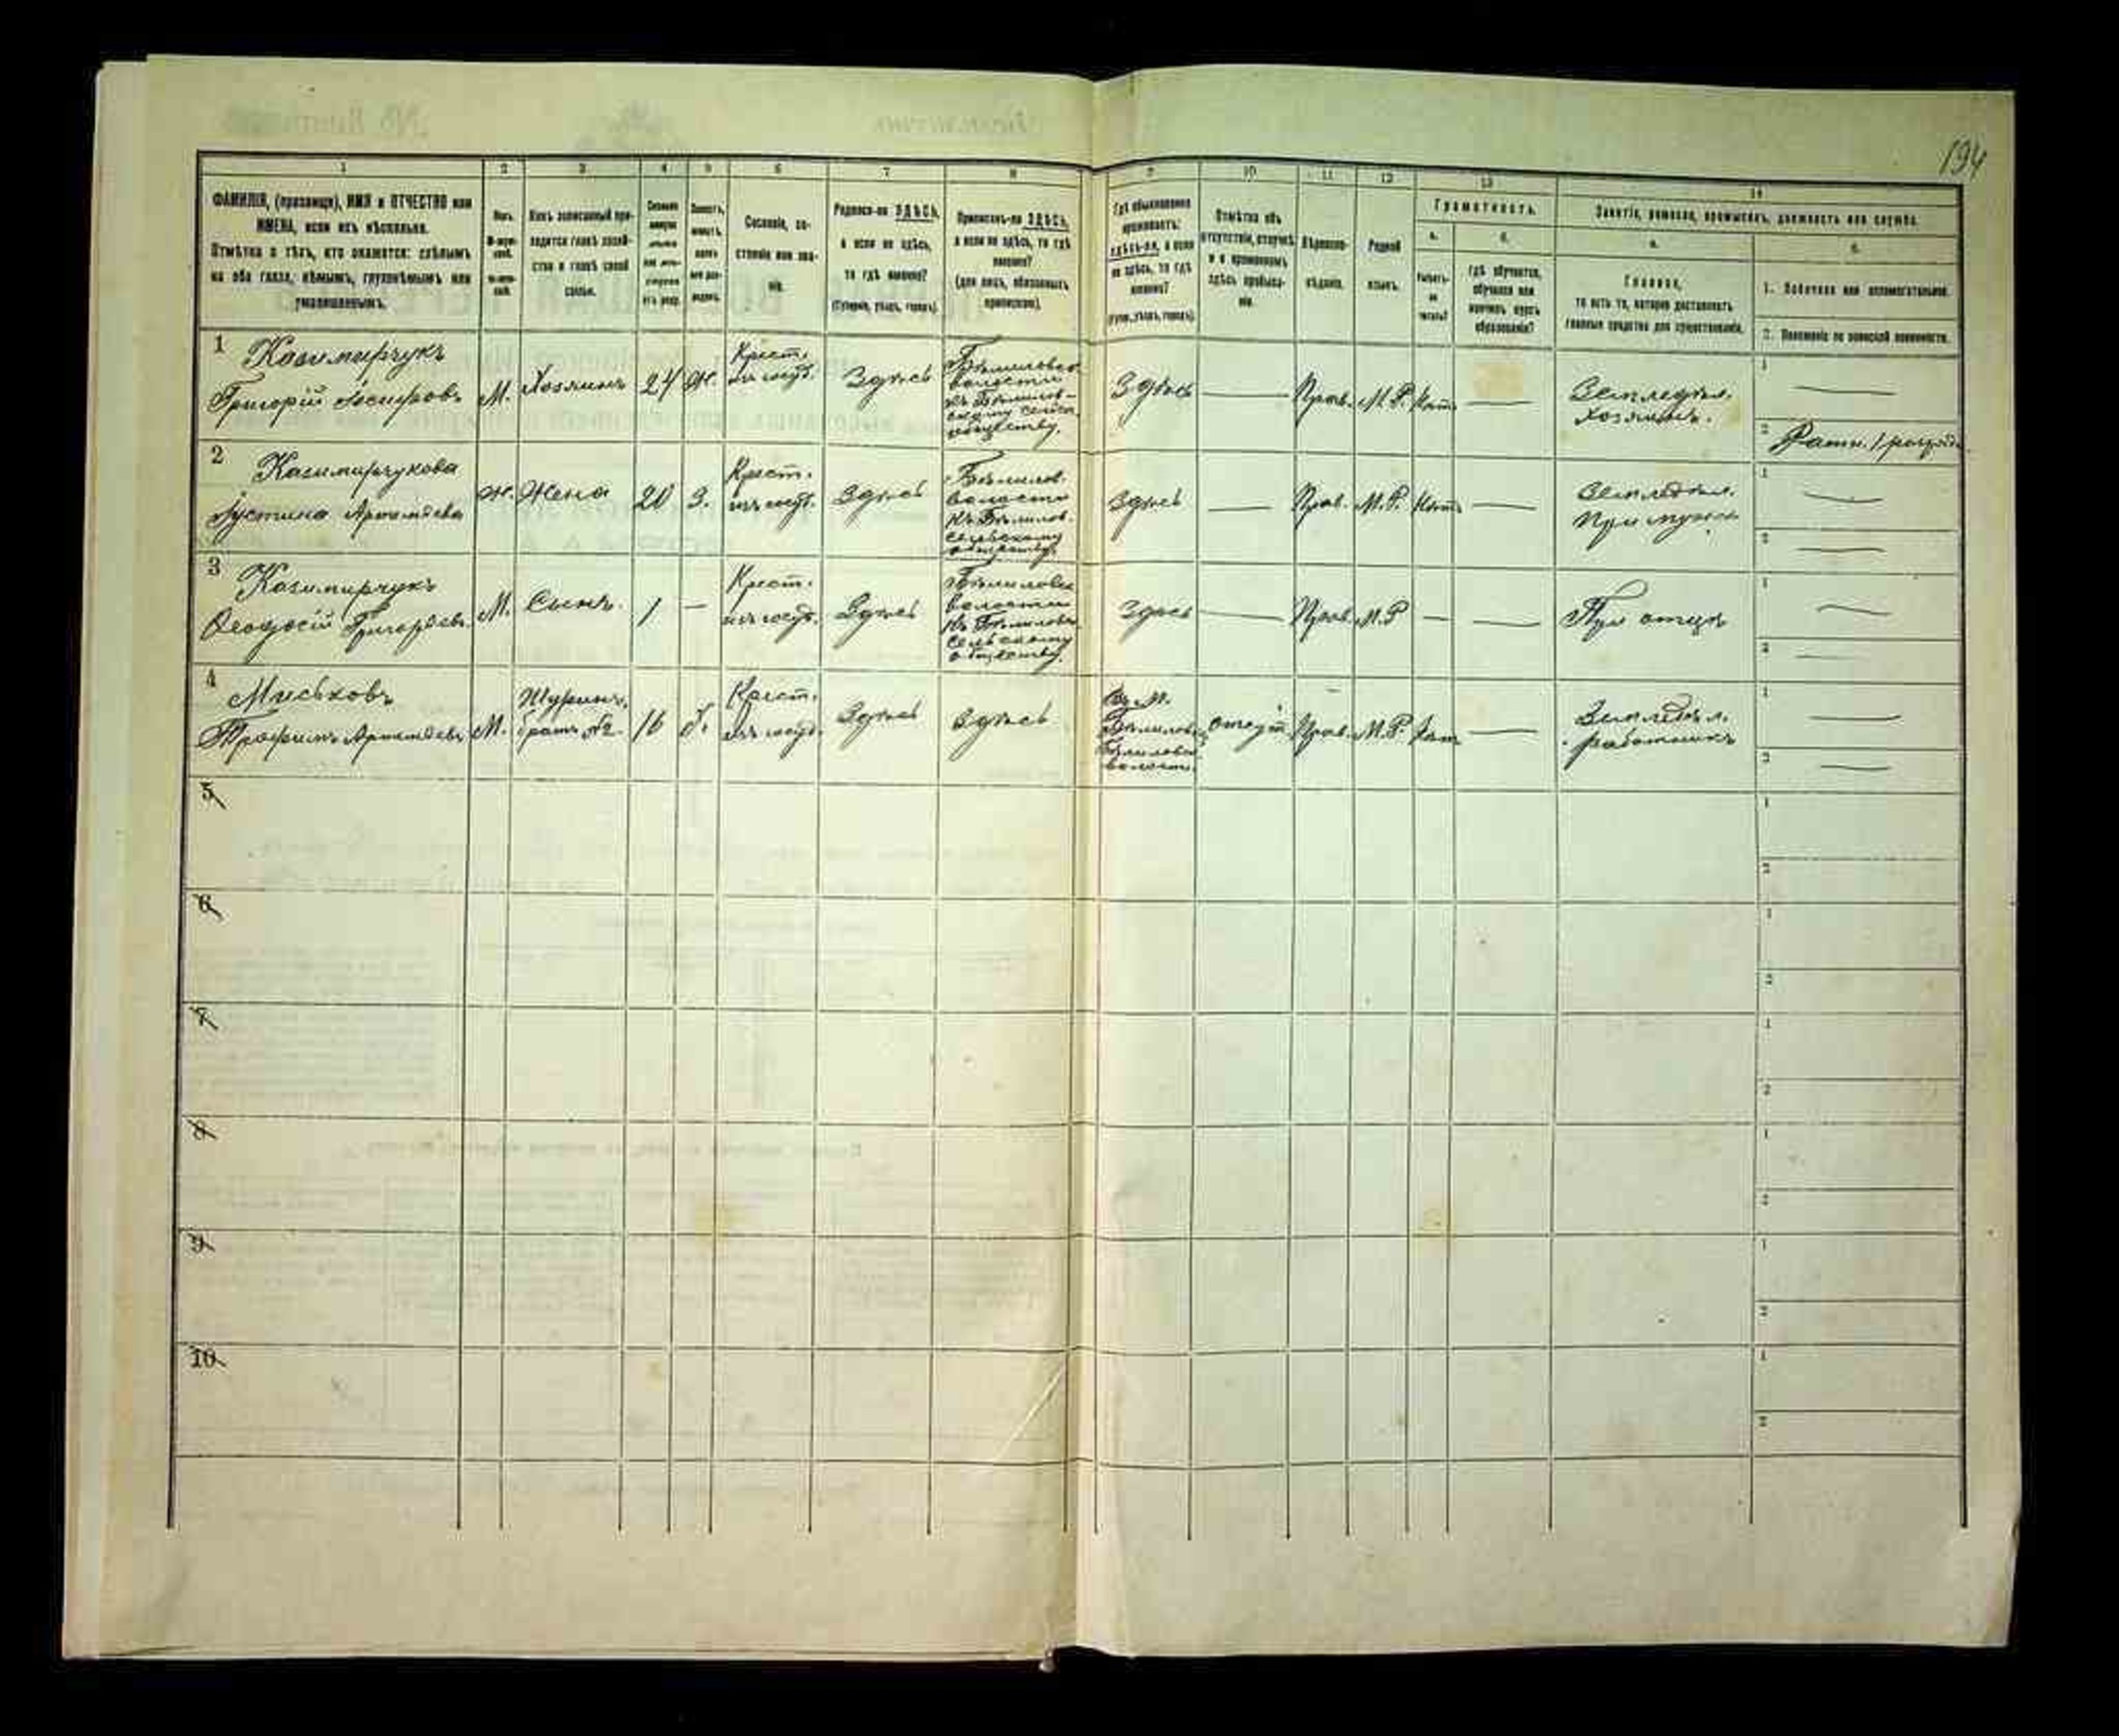 194
1 2 3 4 5 6 7 8 9 10 11 12 13 14
ФАМИЛІЯ, (прозвище), ИМЯ и ОТЧЕСТВО или
ИМЕНА, если ихъ нѣсколько.
Отмѣтка о тѣхъ, кто окажется: слѣпымъ
на оба глаза, нѣмымъ, глухонѣмымъ или
умалишеннымъ.
Полъ.
Какъ записанный при-
ходится главѣ хозяй-
ства и главѣ своей
семьи.
Сословіе, со-
стояніе или зва-
ніе.
Родился-ли ЗДѢСЬ,
а если не здѣсь,
то гдѣ именно?
(Губернія, уѣздъ, городъ).
Приписанъ-ли ЗДѢСЬ,
а если не здѣсь, то гдѣ
именно?
(для лицъ, обязанныхъ
припискою).
Гдѣ обыкновенно
проживаетъ:
здѣсь-ли, а если
не здѣсь, то гдѣ
именно?
(Губ., уѣздъ, городъ).
Отмѣтка объ
отсутствіи, отлучкѣ
и о временномъ
здѣсь пребыва-
ніи.
Вѣроиспо-
вѣданіе.
Родной
языкъ.
Грамотность.
а.
Умѣетъ-
ли
читать?
б.
гдѣ обучается,
обучался или
кончилъ курсъ
образованія?
Занятіе, ремесло, промыселъ, должность или служба.
а.
Главное,
то есть то, которое доставляетъ
главныя средства для существованія.
б.
1. Побочное или вспомогательное.
2. Положеніе по воинской повинности.
1 Казимирчукъ
Григорій Іосифовъ
М. Хозяинъ 24 Ж.
Крест.
изъ госуд.
Здѣсь
волости
обществу.
Здѣсь — Прав. М.Р. —
Земледѣл.
хозяинъ.
1 —
2 Ратн. 1 разряда
2 Казимирчукова
Іустина Артемьева
Ж. Жена 20 З.
Крест.
изъ госуд.
Здѣсь
Бѣлилов.
волости
къ Бѣлилов.
сельскому
обществу.
Здѣсь — Прав. М.Р. —
Земледѣл.
При мужѣ
1 —
2 —
3 Казимирчукъ
Ѳеодосій Григорьевъ
М. Сынъ. 1 —
Крест.
изъ госуд.
Здѣсь
волости
сельскому
обществу.
Здѣсь — Прав. М.Р — —
При отцѣ
1 —
2 —
4 Миськовъ
Трофимъ Артемьевъ
М.
Шуринъ,
братъ №2.
16 Х.
Крест.
изъ госуд.
Здѣсь Здѣсь
Въ м.
Бѣлилов.
волости.
отсут. Прав. М.Р. —
Земледѣл.
работникъ
1 —
2 —
5
1
2
6
1
2
7
1
2
8
1
2
9
1
2
10
1
2